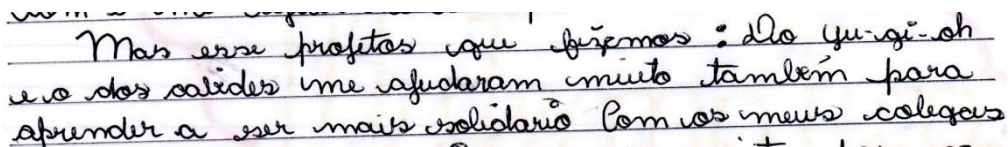 Mas esse profetos que fizemos : Do Yu-gi-oh
e o dos calides me ajudaram muito também para
aprender a ser mais solidario Com os meus colegas